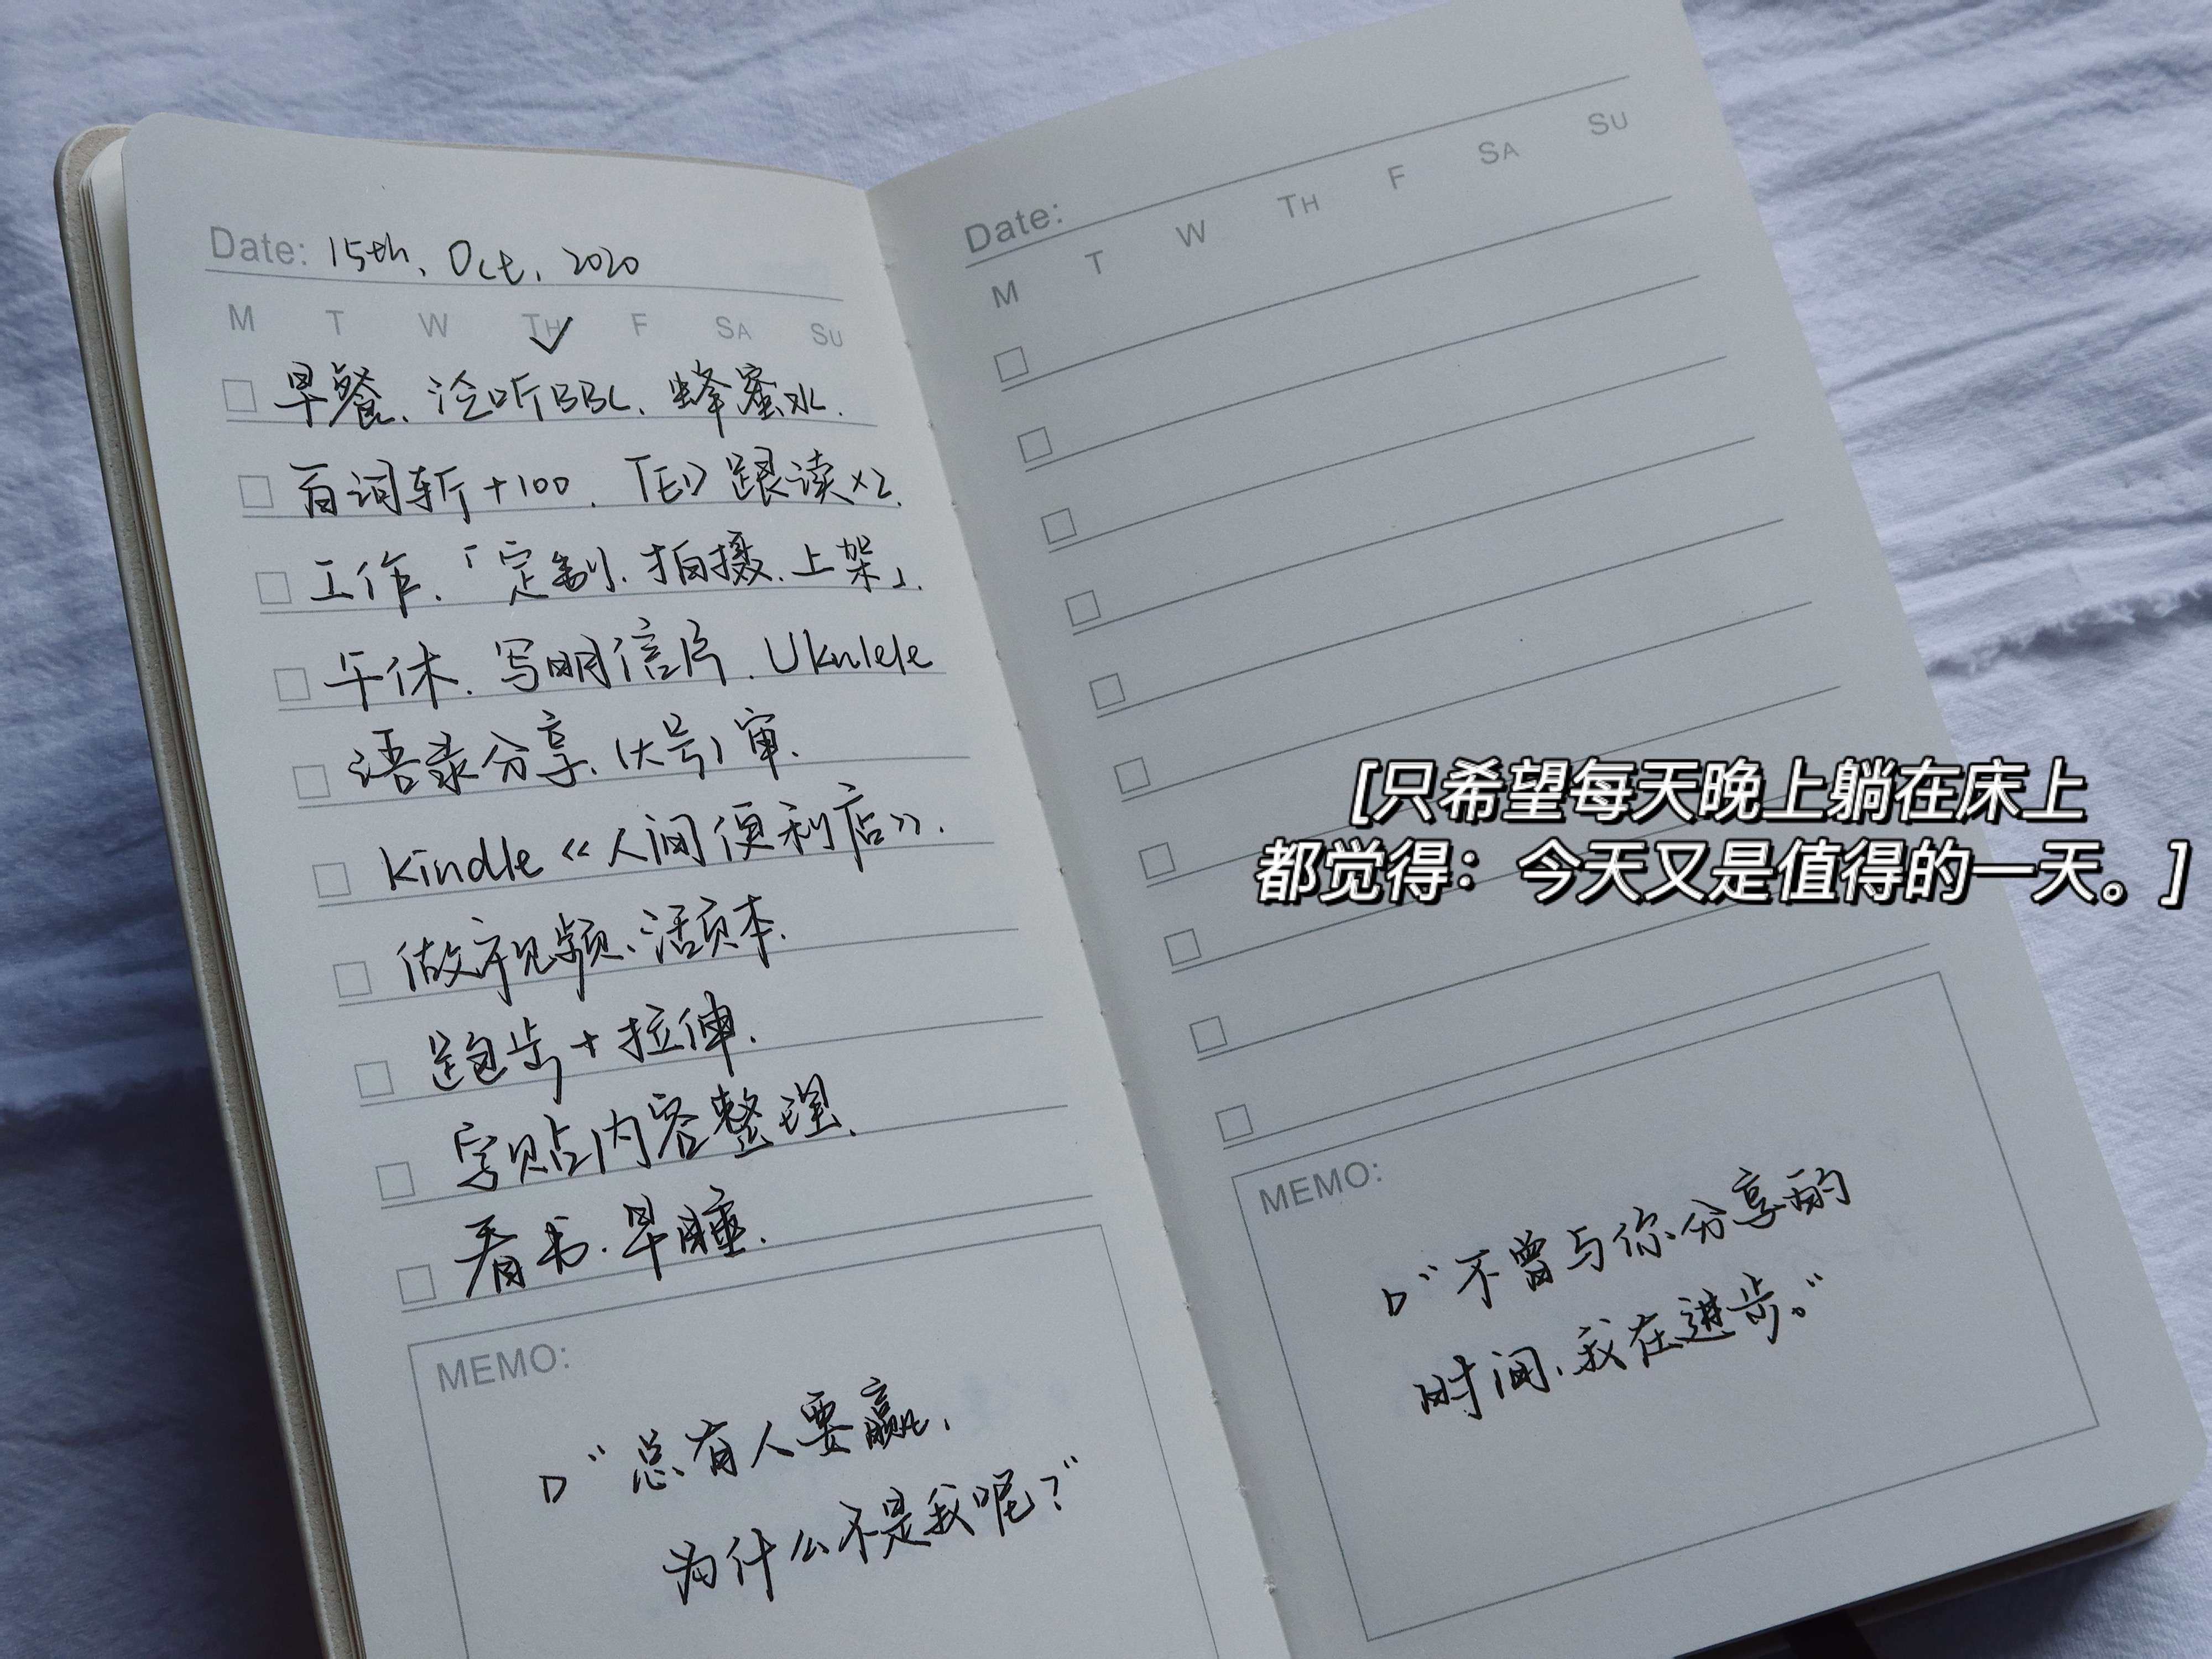 Date: 15th, Oct, 2020
M T W TH F SA SU
早餐、泛听BBC、蜂蜜水.
百词斩+100. TED跟读×2.
工作.「定制.拍摄.上架」.
午休.写明信片.Ukulele
语录分享.(大号)审.
Kindle《人间便利店》.
做视频、活页本.
跑步+拉伸.
字贴内容整理.
看书.早睡.
MEMO:
“总有人要赢,
为什么不是我呢?”
Date:
M T W TH F SA SU
[只希望每天晚上躺在床上
都觉得：今天又是值得的一天。]
MEMO:
“不曾与你分享的
时间,我在进步。”